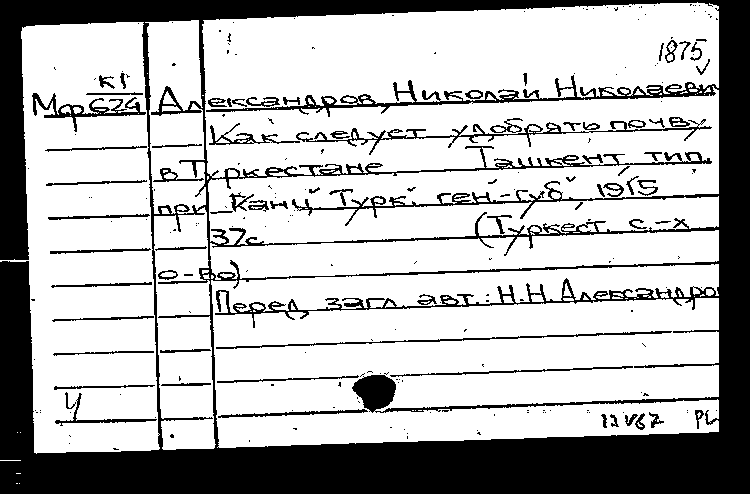 1875
К1
Мф 624 Александров, Николай Николаеви
Как следует удобрять почву
в Туркестане. Ташкент, тип.
при "Канц. Турк. ген.-губ.", 1915
37с. (Туркест. с.-х
о-во).
Перед загл. авт.: Н.Н. Александро
Ч